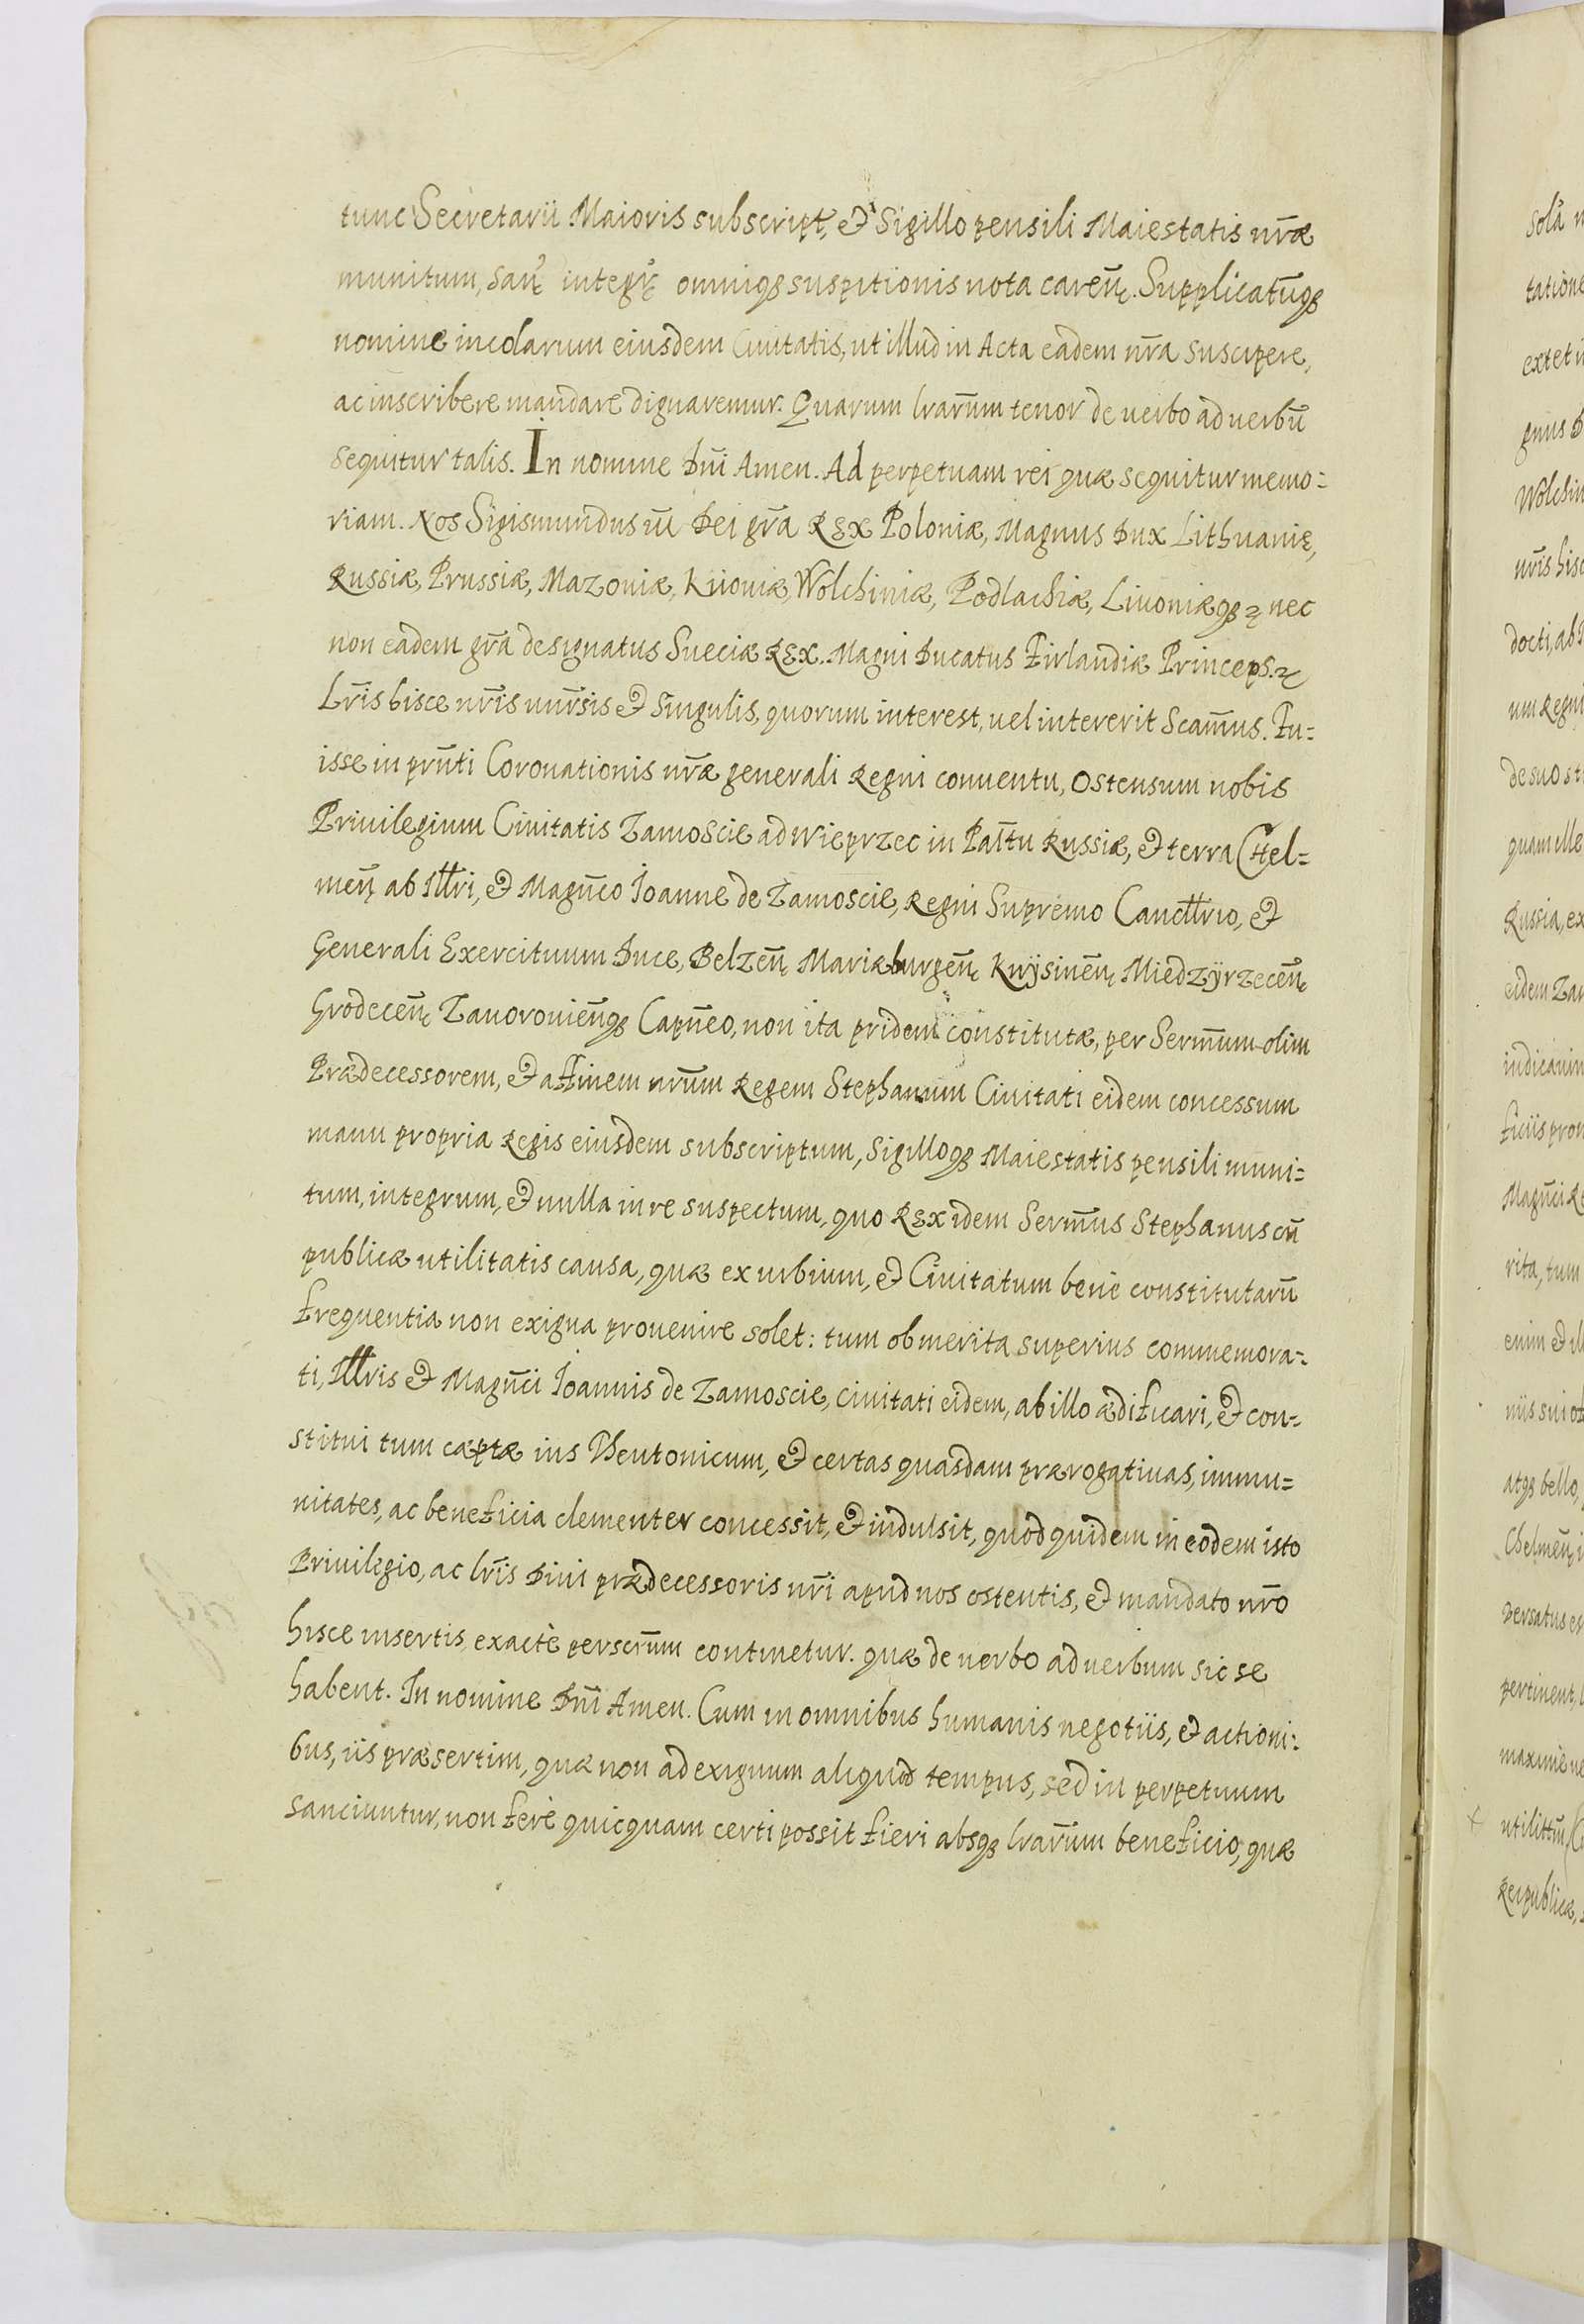 tunc Secretarii Maioris subscript, et Sigillo pensili Maiestatis nr̄æ
munitum, san̄ integr̄ omniqȝ suspitionis nota caren̄. Supplicatūqȝ
nomine incolarum eiusdem Ciuitatis, ut illud in Acta eadem nr̄a suscipere,
ac inscribere mandare dignaremur. Quarum lrar̄um tenor de uerbo ad uerbū
sequitur talis. In nomine Dn̄i Amen. Ad perpetuam rei quæ sequitur memo:
riam. Nos Sigismundus III Dei gr̄a REX Poloniæ, Magnus Dux Lithuanię,
Russiæ, Prussiæ, Mazoniæ, Kiioniæ, Wolchiniæ, Podlachiæ, Liuoniæqȝ ꝛ nec
non eadem gr̄a designatus Sueciæ REX. Magni Ducatus Firlandiæ Princeps. ꝛ
Lr̄is hisce nr̄is unr̄sis et singulis, quorum interest, uel intererit Scam̄us. Fu:
isse in prn̄ti Coronationis nr̄æ generali Regni conuentu, ostensum nobis
Priuilegium Ciuitatis Zamoscie ad Wieprzec in Pal̄tu Russiæ, et terra Chel:
men̄ ab Illri, et Magn̄co Ioanne de Zamoscie, Regni Supremo Cancllrio, et
Generali Exercituum Duce, Belzen̄ Mariæburgen̄ Knÿsinen̄ Miedzÿrzecen̄
Grodecen̄ Zanoronien̄qȝ Capn̄eo, non ita pridem constitutæ, per Serm̄um olim
Prædecessorem, et affinem nrūm Regem Stephanum Ciuitati eidem concessum
manu propria Regis eiusdem subscriptum, Sigilloqȝ Maiestatis pensili muni:
tum, integrum, et nulla in re suspectum, quo REX idem Serm̄us Stephanus cū
publicæ utilitatis causa, quæ ex urbium, et Ciuitatum bene constitutarū
frequentia non exigua prouenire solet: tum ob merita superius commemora:
ti, Illris et Magn̄ci Ioannis de Zamoscie, ciuitati eidem, ab illo ædificari, et con:
stitui tum cæptæ ius Theutonicum, et certas quasdam prærogatiuas, immu:
nitates, ac beneficia clementer concessit, et indulsit, quod quidem in eodem isto
Priuilegio, ac lr̄is Diui prædecessoris nr̄i apud nos ostentis, et mandato nr̄o
hisce insertis exactè perscrm̄um continetur. quæ de uerbo ad uerbum sic se
habent. In nomine Dn̄i Amen. Cum in omnibus humanis negotiis, et actioni:
bus, iis præsertim, quæ non ad exiguum aliquod tempus, sed in perpetuum
sanciuntur, non ferè quicquam certi possit fieri absqȝ lrar̄um beneficio, quæ